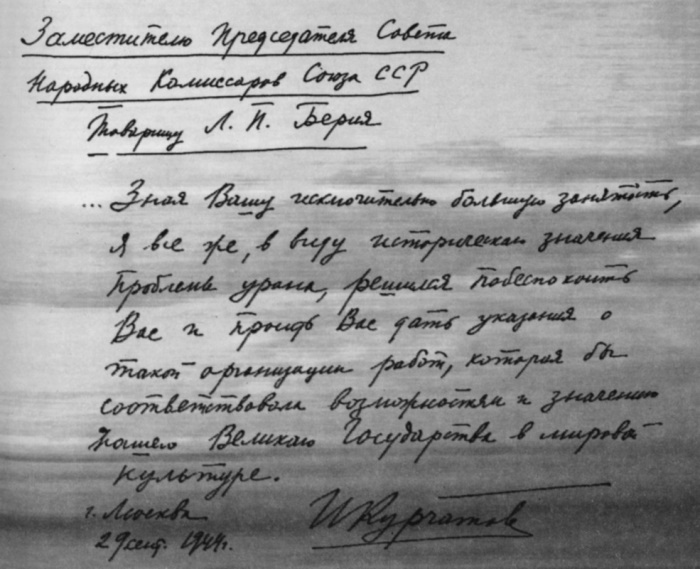 Заместителю Председателя Совета
Народных Комиссаров Союза ССР
Товарищу Л. П. Берия
... Зная Вашу исключительно большую занятость,
я все же, в виду исторического значения
проблемы урана, решился побеспокоить
Вас и просить Вас дать указания о
такой организации работ, которая бы
соответствовала возможностям и значению
Нашего Великого Государства в мировой
культуре.
г. Москва
29 сент. 1944г.
И Курчатов